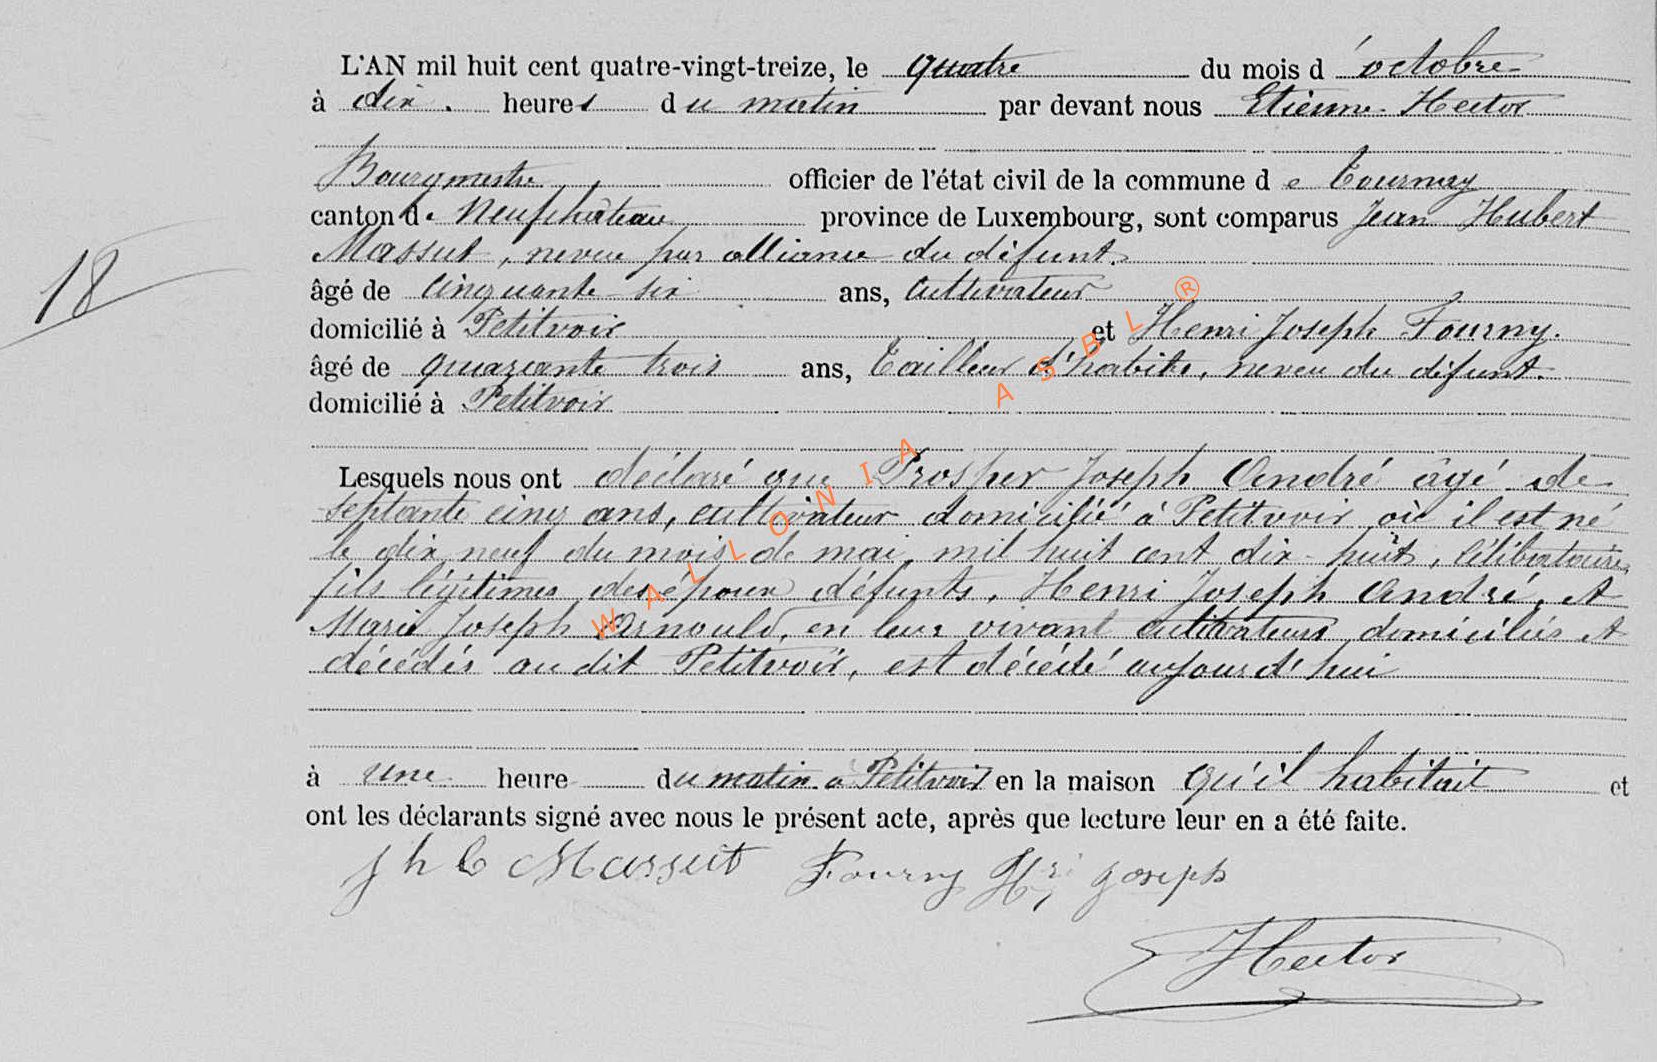 L'AN mil huit cent quatre-vingt-treize, le quatre du mois d'octobre
à dix heures du matin par devant nous Etienne Hector
Bourgmestre officier de l'état civil de la commune de Tournay
canton de Neufchâteau province de Luxembourg, sont comparus Jean Hubert
Massut, neveu par alliance du défunt.
âgé de cinquante six ans, cultivateur
domicilié à Petitvoir et Henri Joseph Fourny.
âgé de quarante trois ans, Tailleur d'habits, neveu du défunt.
domicilié à Petitvoir
18
Lesquels nous ont déclaré que Prosper Joseph André âgé de
septante cinq ans, cultivateur domicilié à Petitvoir où il est né
le dix neuf du mois de mai mil huit cent dix-huit, célibataire,
fils légitimes des époux défunts, Henri Joseph André, et
Marie Joseph Arnould, en leur vivant cultivateurs domiciliés et
décédés au dit Petitvoir, est décédé aujourd'hui
à une heure du matin à Petitvoir en la maison qu'il habitait et
ont les déclarants signé avec nous le présent acte, après que lecture leur en a été faite.
J h Massut Fourny Hri Joseph
Hector
WALLONIA ASBL ®